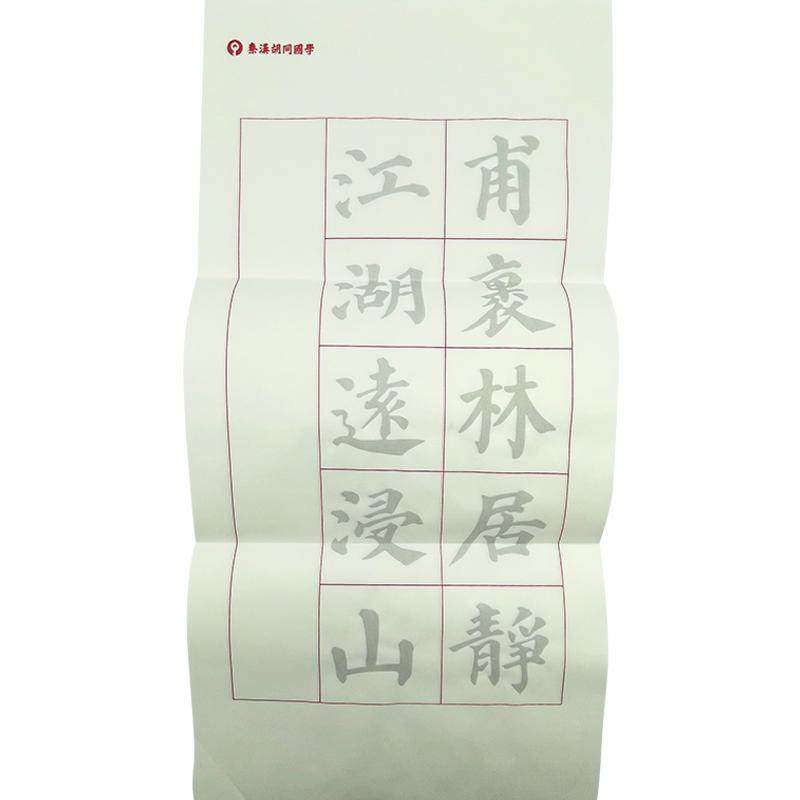 秦漢胡同國學
甫裏林居靜
江湖遠浸山